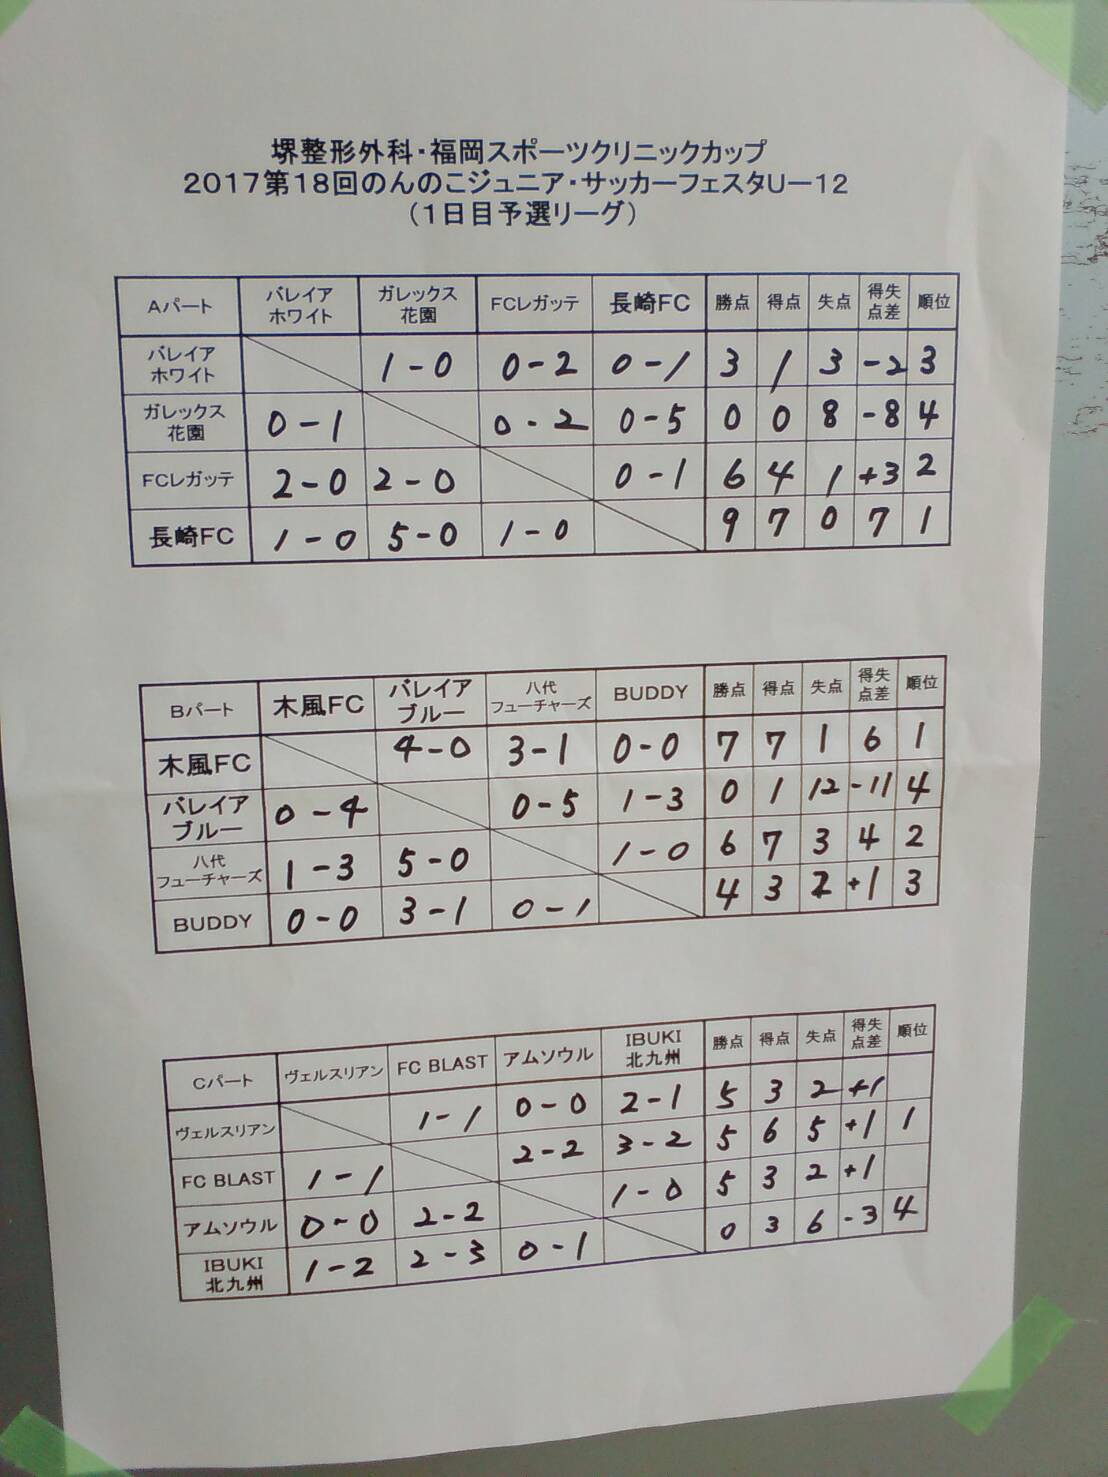 堺整形外科・福岡スポーツクリニックカップ
2017第18回のんのこジュニア・サッカーフェスタU－12
（1日目予選リーグ）
Aパート バレイアホワイト ガレックス花園 FCレガッテ 長崎FC 勝点 得点 失点 得失点差 順位
バレイアホワイト 1-0 0-2 0-1 3 1 3 -2 3
ガレックス花園 0-1 0-2 0-5 0 0 8 -8 4
FCレガッテ 2-0 2-0 0-1 6 4 1 +3 2
長崎FC 1-0 5-0 1-0 9 7 0 7 1
Bパート 木風FC バレイアブルー 八代フューチャーズ BUDDY 勝点 得点 失点 得失点差 順位
木風FC 4-0 3-1 0-0 7 7 1 6 1
バレイアブルー 0-4 0-5 1-3 0 1 12 -11 4
八代フューチャーズ 1-3 5-0 1-0 6 7 3 4 2
BUDDY 0-0 3-1 0-1 4 3 2 +1 3
Cパート ヴェルスリアン FC BLAST アムソウル IBUKI北九州 勝点 得点 失点 得失点差 順位
ヴェルスリアン 1-1 0-0 2-1 5 3 2 +1
FC BLAST 1-1 2-2 3-2 5 6 5 +1 1
アムソウル 0-0 2-2 1-0 5 3 2 +1
IBUKI北九州 1-2 2-3 0-1 0 3 6 -3 4